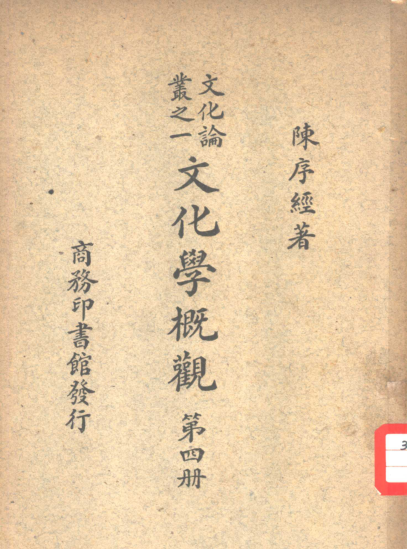 陳序經著
文化論
叢之一
文化學概觀
第四册
商務印書館發行
3